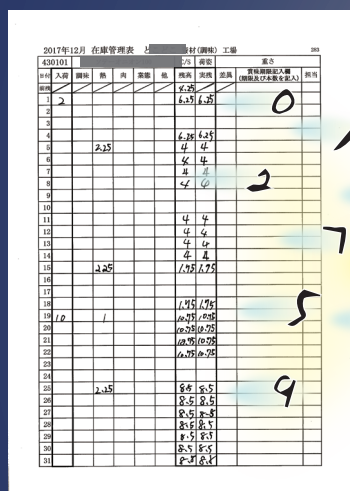 2017年12月 在庫管理表 と 材(調味) 工場 263
430101 C/S 荷姿 重さ
日付 入荷 調味 熱 肉 業態 他 残高 実残 差異 賞味期限記入欄 (期限及び本数を記入) 担当
前残 4.25
1 2 6.25 6.25
2
3
4 6.25 6.25
5 2.25 4 4
6 4 4
7 4 4
8 4 4
9
10
11 4 4
12 4 4
13 4 4
14 4 4
15 2.25 1.75 1.75
16
17
18 1.75 1.75
19 10 1 10.75 10.75
20 10.75 10.75
21 10.75 10.75
22 10.75 10.75
23
24
25 2.25 8.5 8.5
26 8.5 8.5
27 8.5 8.5
28 8.5 8.5
29 8.5 8.5
30 8.5 8.5
31 8.5 8.5
0
2
7
5
9